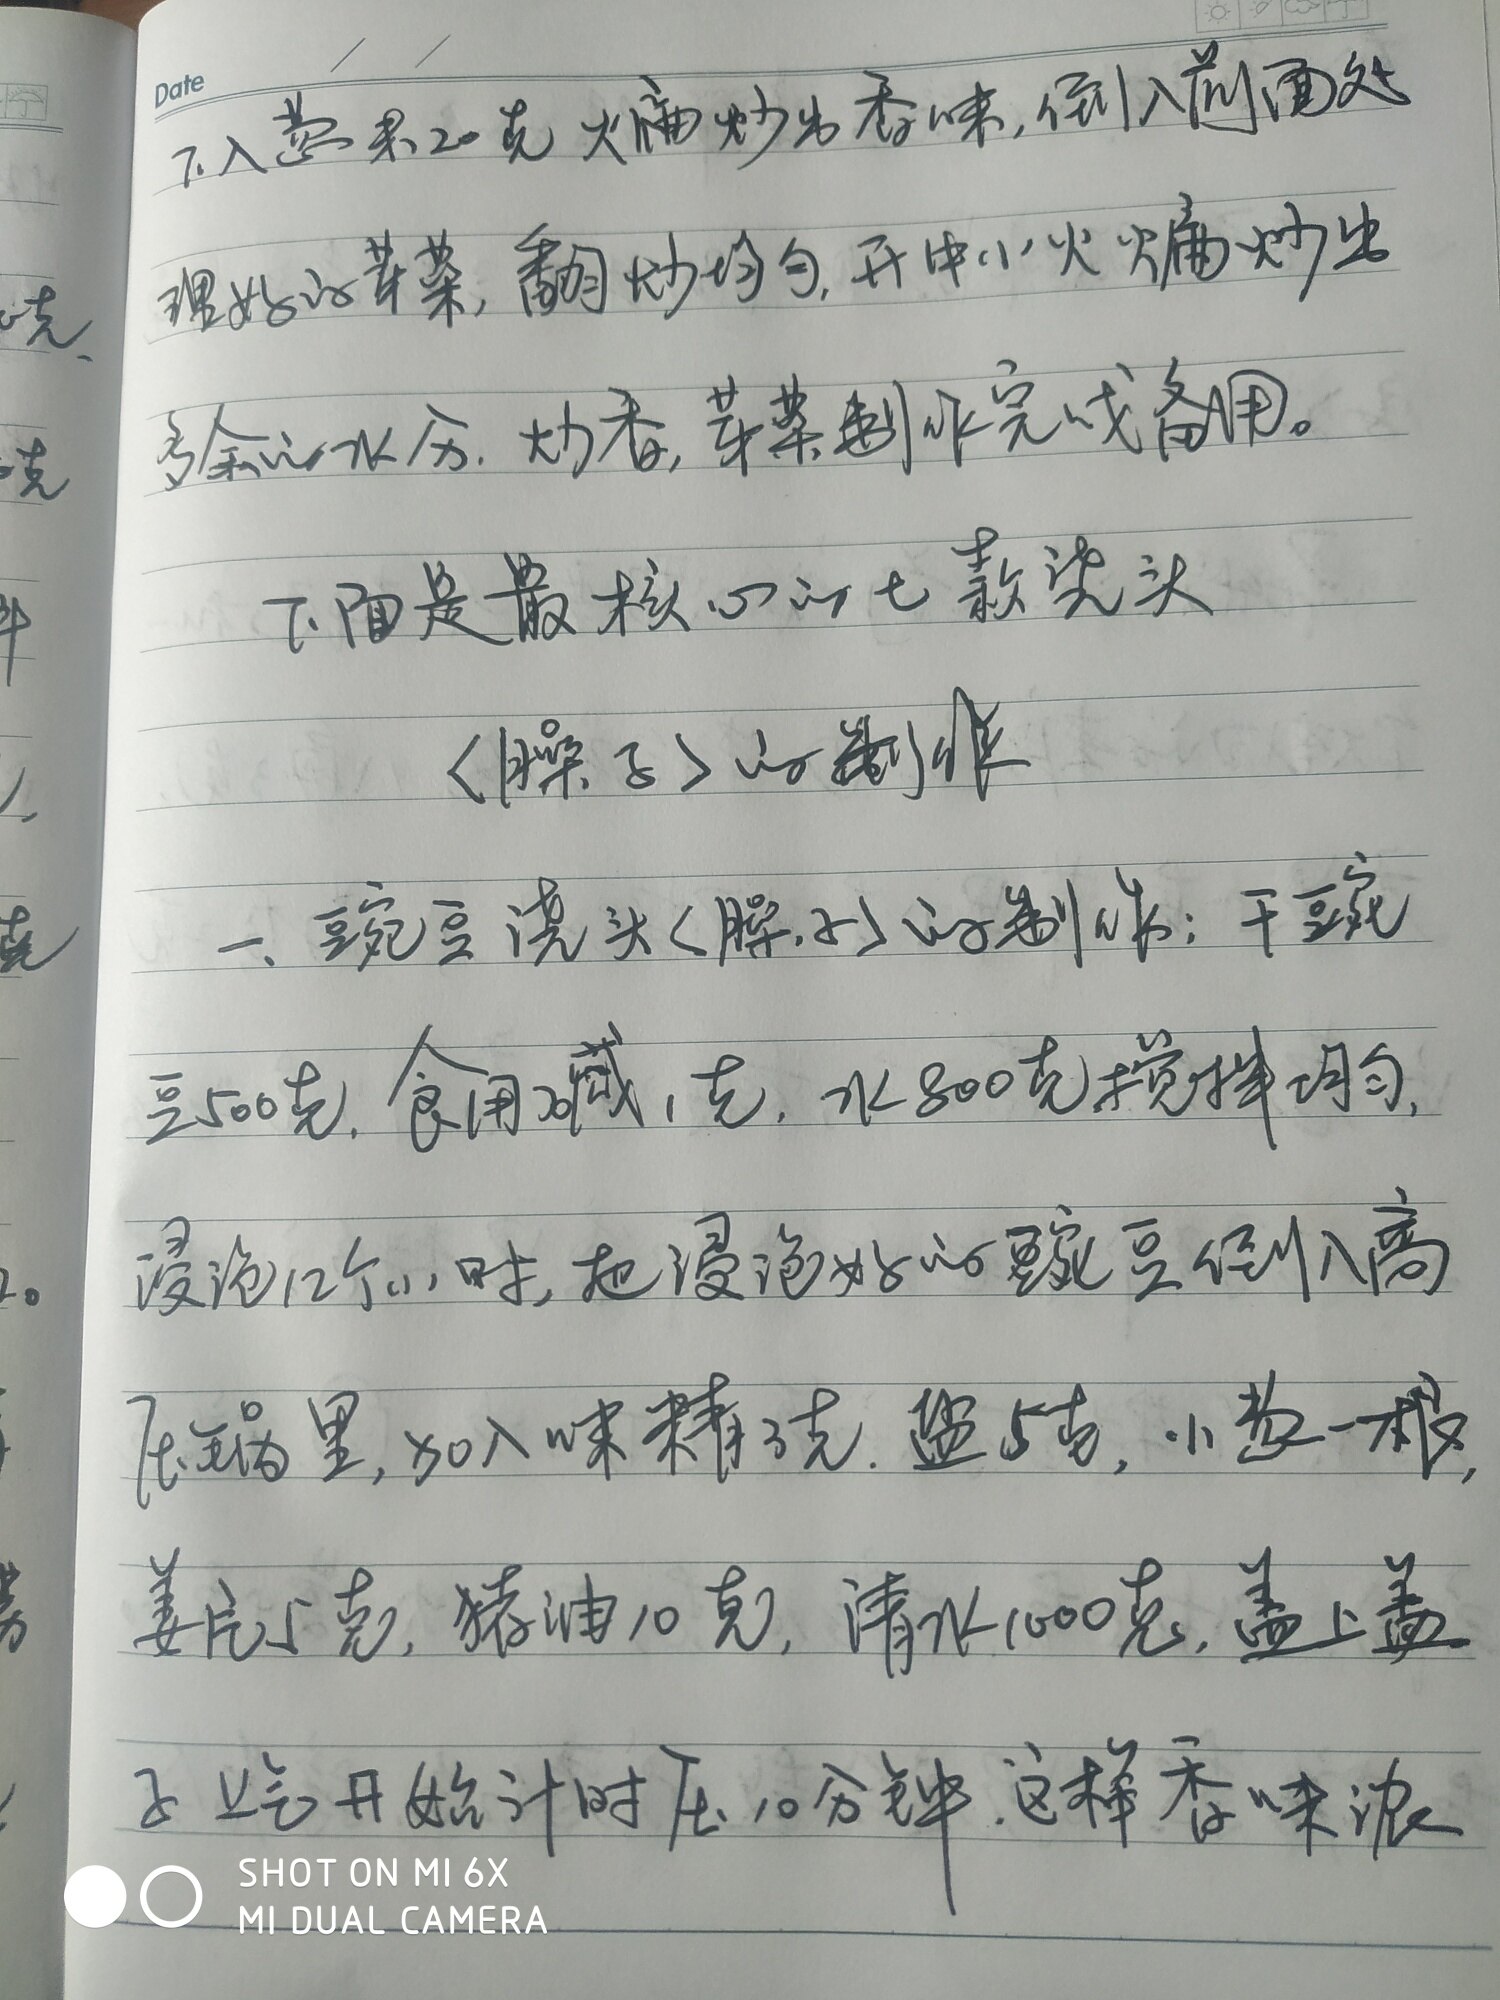 Date
下入葱末20克煸炒出香味,倒入前面处
理好的芽菜,翻炒均匀,开中小火煸炒出
多余的水分.炒香,芽菜制作完成备用。
下面是最核心的七款浇头
<臊子>的制作
一、豌豆浇头<臊子>的制作:干豌
豆500克.食用碱1克.水800克搅拌均匀,
浸泡12个小时,把浸泡好的豌豆倒入高
压锅里,加入味精3克.盐5克,小葱一根,
姜片5克,猪油10克,清水1000克,盖上盖
子上气开始计时压10分钟.这样香味浓
SHOT ON MI 6X
MI DUAL CAMERA